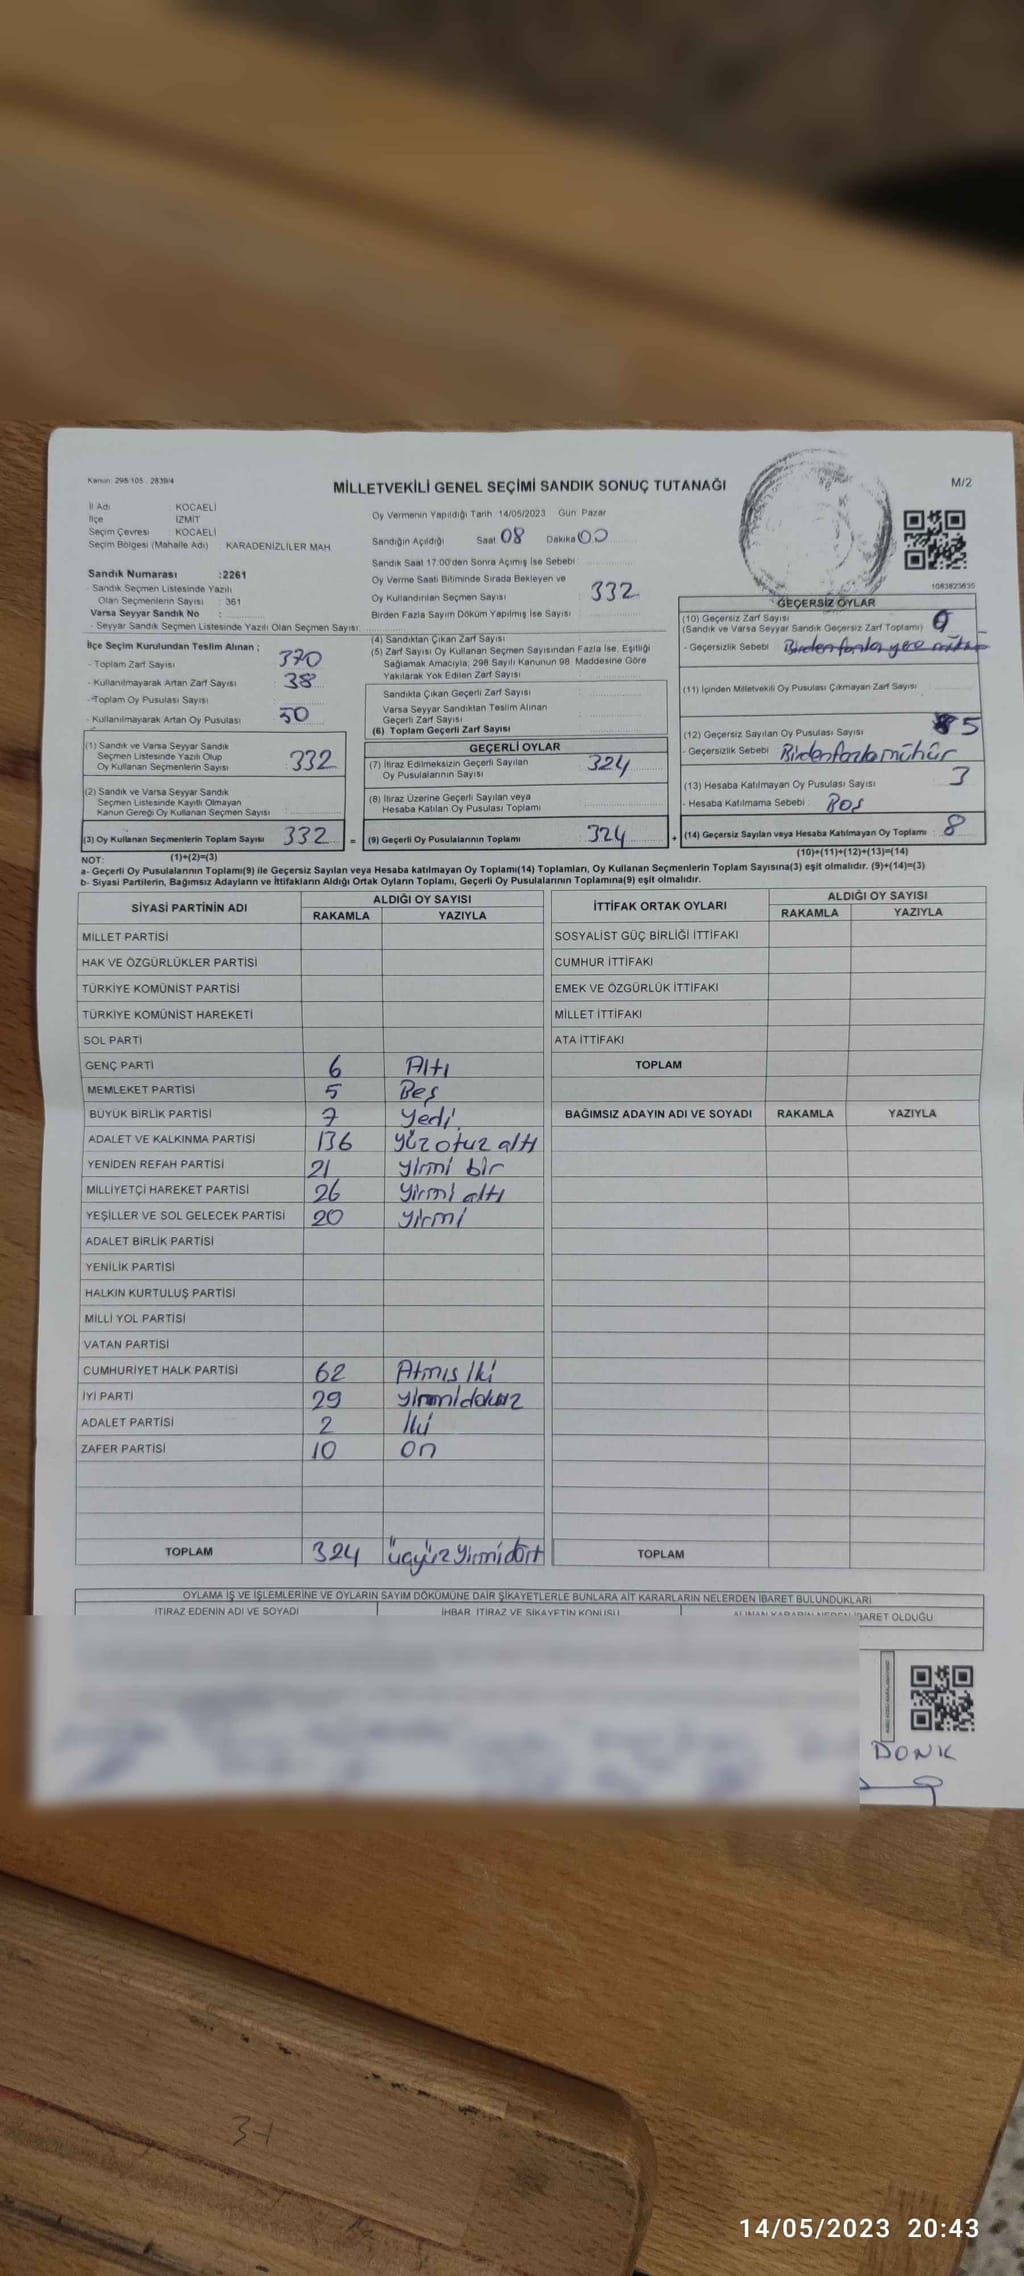 Kanun: 298/105 . 2839/4
MİLLETVEKİLİ GENEL SEÇİMİ SANDIK SONUÇ TUTANAĞI
M/2
İl Adı : KOCAELİ
İlçe : İZMİT
Seçim Çevresi : KOCAELİ
Seçim Bölgesi (Mahalle Adı) : KARADENİZLİLER MAH.
Oy Vermenin Yapıldığı Tarih 14/05/2023 Gün: Pazar
Sandığın Açıldığı Saat 08 Dakika 00
Sandık Saat 17:00'den Sonra Açımış İse Sebebi :
Oy Verme Saati Bitiminde Sırada Bekleyen ve
Oy Kullandırılan Seçmen Sayısı : 332
Birden Fazla Sayım Döküm Yapılmış İse Sayısı :
1083823635
Sandık Numarası :2261
- Sandık Seçmen Listesinde Yazılı
Olan Seçmenlerin Sayısı : 361
Varsa Seyyar Sandık No :
- Seyyar Sandık Seçmen Listesinde Yazılı Olan Seçmen Sayısı:
İlçe Seçim Kurulundan Teslim Alınan ;
- Toplam Zarf Sayısı : 370
- Kullanılmayarak Artan Zarf Sayısı : 38
- Toplam Oy Pusulası Sayısı
- Kullanılmayarak Artan Oy Pusulası : 50
(1) Sandık ve Varsa Seyyar Sandık
Seçmen Listesinde Yazılı Olup
Oy Kullanan Seçmenlerin Sayısı : 332
(2) Sandık ve Varsa Seyyar Sandık
Seçmen Listesinde Kayıtlı Olmayan
Kanun Gereği Oy Kullanan Seçmen Sayısı :
(3) Oy Kullanan Seçmenlerin Toplam Sayısı : 332 =
(4) Sandıktan Çıkan Zarf Sayısı :
(5) Zarf Sayısı Oy Kullanan Seçmen Sayısından Fazla İse, Eşitliği
Sağlamak Amacıyla; 298 Sayılı Kanunun 98. Maddesine Göre
Yakılarak Yok Edilen Zarf Sayısı :
Sandıkta Çıkan Geçerli Zarf Sayısı :
Varsa Seyyar Sandıktan Teslim Alınan
Geçerli Zarf Sayısı :
(6) Toplam Geçerli Zarf Sayısı :
GEÇERLİ OYLAR
(7) İtiraz Edilmeksizin Geçerli Sayılan
Oy Pusulalarının Sayısı : 324
(8) İtiraz Üzerine Geçerli Sayılan veya
Hesaba Katılan Oy Pusulası Toplamı :
(9) Geçerli Oy Pusulalarının Toplamı : 324 +
GEÇERSİZ OYLAR
(10) Geçersiz Zarf Sayısı
(Sandık ve Varsa Seyyar Sandık Geçersiz Zarf Toplamı) : 0
- Geçersizlik Sebebi :
(11) İçinden Milletvekili Oy Pusulası Çıkmayan Zarf Sayısı :
(12) Geçersiz Sayılan Oy Pusulası Sayısı : 5
- Geçersizlik Sebebi : Birden fazla mühür
(13) Hesaba Katılmayan Oy Pusulası Sayısı : 3
- Hesaba Katılmama Sebebi : Boş
(14) Geçersiz Sayılan veya Hesaba Katılmayan Oy Toplamı : 8
NOT: (1)+(2)=(3)
(10)+(11)+(12)+(13)=(14)
a- Geçerli Oy Pusulalarının Toplamı(9) ile Geçersiz Sayılan veya Hesaba katılmayan Oy Toplamı(14) Toplamları, Oy Kullanan Seçmenlerin Toplam Sayısına(3) eşit olmalıdır. (9)+(14)=(3)
b- Siyasi Partilerin, Bağımsız Adayların ve İttifakların Aldığı Ortak Oyların Toplamı, Geçerli Oy Pusulalarının Toplamına(9) eşit olmalıdır.
SİYASİ PARTİNİN ADI ALDIĞI OY SAYISI
RAKAMLA YAZIYLA
MİLLET PARTİSİ
HAK VE ÖZGÜRLÜKLER PARTİSİ
TÜRKİYE KOMÜNİST PARTİSİ
TÜRKİYE KOMÜNİST HAREKETİ
SOL PARTİ
GENÇ PARTİ 6 Altı
MEMLEKET PARTİSİ 5 Beş
BÜYÜK BİRLİK PARTİSİ 7 Yedi
ADALET VE KALKINMA PARTİSİ 136 yüzotuz altı
YENİDEN REFAH PARTİSİ 21 yirmi bir
MİLLİYETÇİ HAREKET PARTİSİ 26 yirmi altı
YEŞİLLER VE SOL GELECEK PARTİSİ 20 yirmi
ADALET BİRLİK PARTİSİ
YENİLİK PARTİSİ
HALKIN KURTULUŞ PARTİSİ
MİLLİ YOL PARTİSİ
VATAN PARTİSİ
CUMHURİYET HALK PARTİSİ 62 Atmış iki
İYİ PARTİ 29 yirmidokuz
ADALET PARTİSİ 2 İki
ZAFER PARTİSİ 10 on
TOPLAM 324 üçyüz yirmidört
İTTİFAK ORTAK OYLARI ALDIĞI OY SAYISI
RAKAMLA YAZIYLA
SOSYALİST GÜÇ BİRLİĞİ İTTİFAKI
CUMHUR İTTİFAKI
EMEK VE ÖZGÜRLÜK İTTİFAKI
MİLLET İTTİFAKI
ATA İTTİFAKI
TOPLAM
BAĞIMSIZ ADAYIN ADI VE SOYADI RAKAMLA YAZIYLA
TOPLAM
OYLAMA İŞ VE İŞLEMLERİNE VE OYLARIN SAYIM DÖKÜMÜNE DAİR ŞİKAYETLERLE BUNLARA AİT KARARLARIN NELERDEN İBARET BULUNDUKLARI
İTİRAZ EDENİN ADI VE SOYADI İHBAR, İTİRAZ VE ŞİKAYETİN KONUSU ALINAN KARARIN NEDEN İBARET OLDUĞU
DONK
31
14/05/2023 20:43